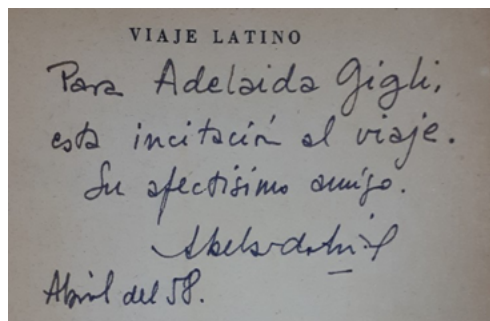 VIAJE LATINO
Para Adelaida Gigli,
esta incitación al viaje.
Su afectísimo amigo.
Abril del 58.